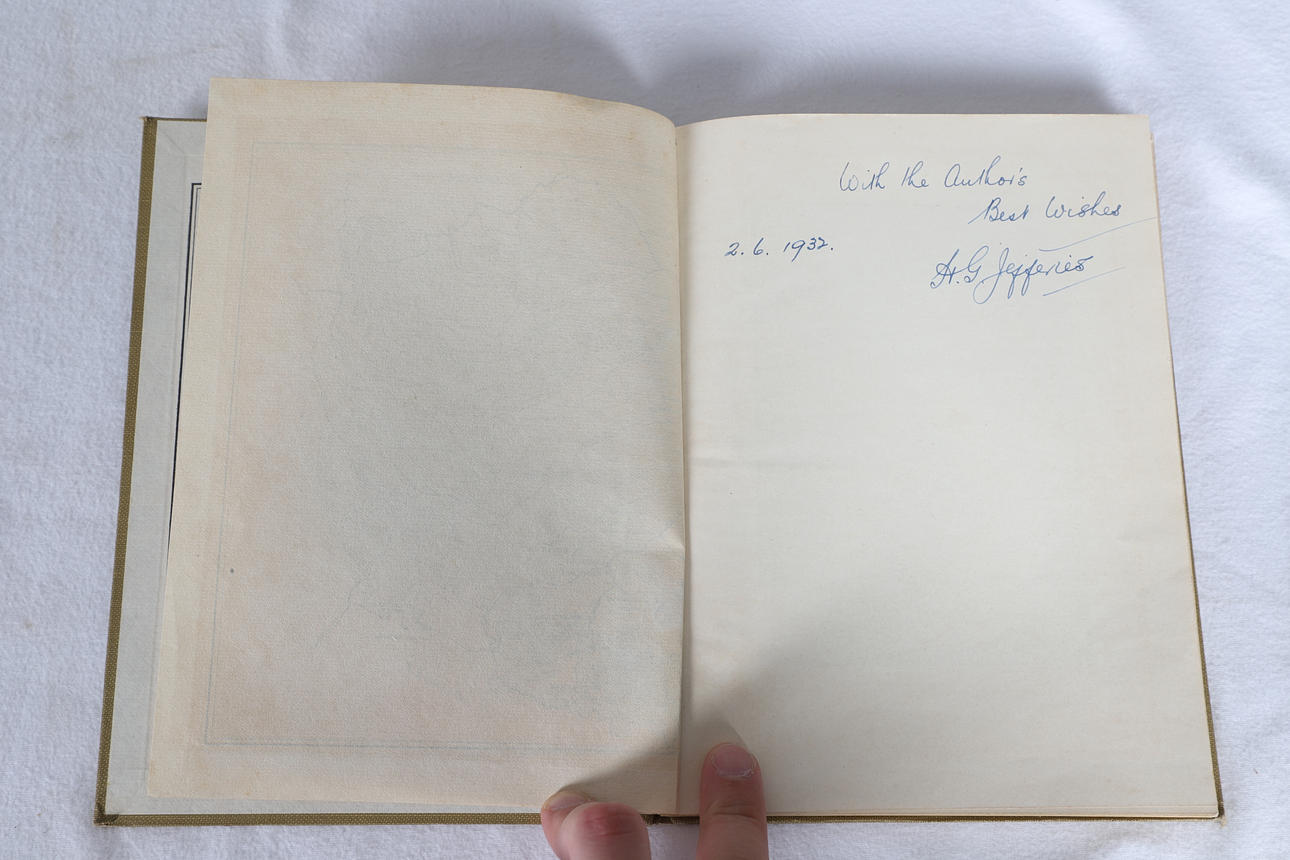 With the Author's
Best Wishes
2. 6. 1932.
H. G. Jefferies